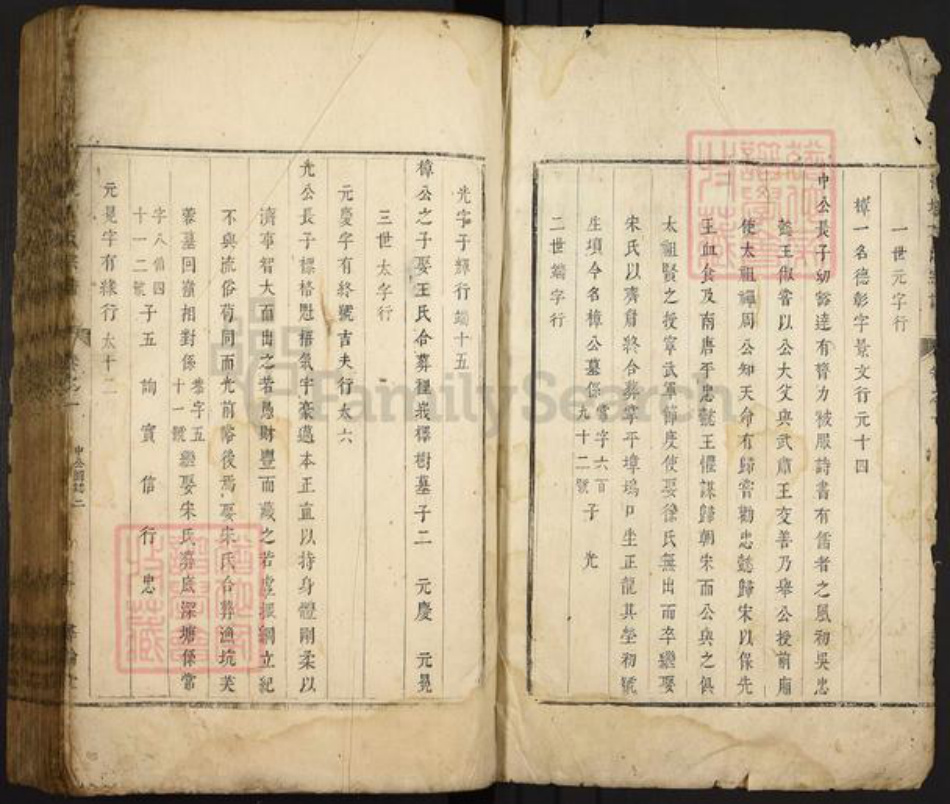 一世元字行
樟一名德彰字景文行元十四
中公長子幼豁達有膂力被服詩書有儒者之風初吳忠
懿王俶嘗以公大父與武肅王交善乃舉公授前廟
使太祖禪周公知天命有歸嘗勸忠懿歸宋以保先
王血食及南唐平忠懿王懼謀歸朝宋而公與之俱
太祖賢之授寧武軍節度使娶徐氏無出而卒繼娶
宋氏以齊眉終合葬峯平璋塢口坐正龍其塋初號
生項今名樟公墓係當字六百九十二號子 光
二世端字行
光字子輝行端十五
樟公之子娶王氏合葬裡峩檡樹墓子二 元慶 元晃
三世太字行
元慶字有終號吉夫行太六
光公長子標格魁梧氣宇豪邁本正直以持身體剛柔以
濟事智大而出之若愚財豐而藏之若虛振綱立紀
不與流俗苟同而光前裕後焉娶朱氏合葬漁坑芙
蓉墓回嶺相對係恭字五十一號繼娶宋氏葬底深塘係常
字八佰四十一二號子五 詢 實 信 行 忠
元晃字有緣行太十二
卷之一
中公圖誌二
FamilySearch